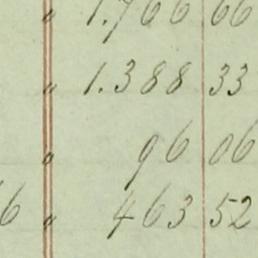 " 1.766 66
" 1.388 33
" 96 06
6 " 463 52